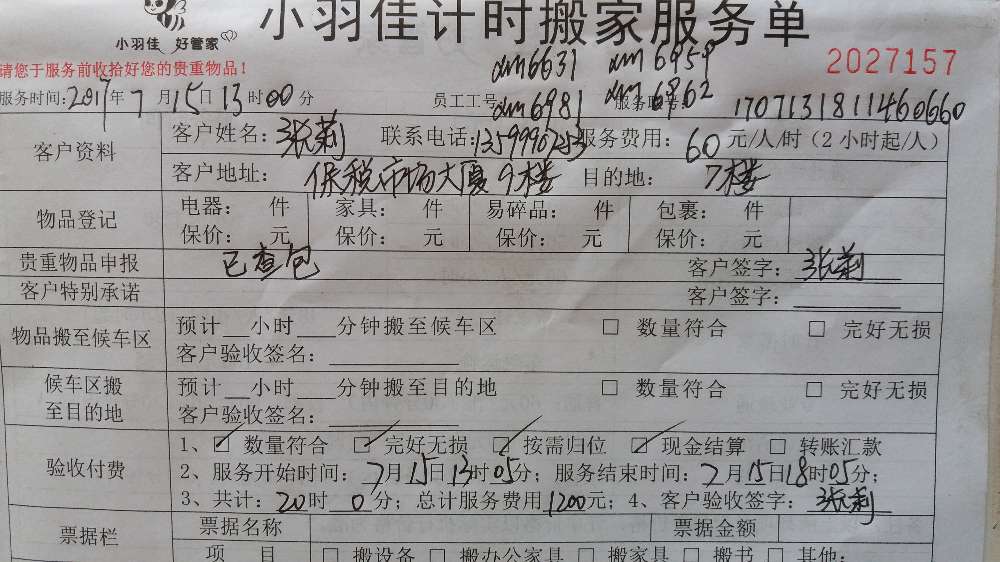 小羽佳计时搬家服务单
小羽佳 好管家
请您于服务前收拾好您的贵重物品！
xm6631 xm6959
2027157
服务时间：2017年7月15日13时00分 员工工号 xm6981 xm6862 1707131811460660
客户资料 客户姓名：张莉 联系电话：13599967253 服务费用：60元/人/时（2小时起/人）
客户地址：保税市场大厦9楼 目的地：7楼
物品登记 电器： 件 家具： 件 易碎品： 件 包裹： 件
保价： 元 保价： 元 保价： 元 保价： 元
贵重物品申报 已查包 客户签字：张莉
客户特别承诺 客户签字：
物品搬至候车区 预计__小时___分钟搬至候车区 □ 数量符合 □ 完好无损
客户验收签名：
候车区搬至目的地 预计__小时___分钟搬至目的地 □ 数量符合 □ 完好无损
客户验收签名：
验收付费 1、☑ 数量符合 ☑ 完好无损 ☑ 按需归位 ☑ 现金结算 □ 转账汇款
2、服务开始时间：7月15日13时05分；服务结束时间：7月15日18时05分；
3、共计：20时0分；总计服务费用1200元；4、客户验收签字：张莉
票据栏 票据名称 票据金额
项 目 □ 搬设备 □ 搬办公家具 □ 搬家具 □ 搬书 □ 其他：